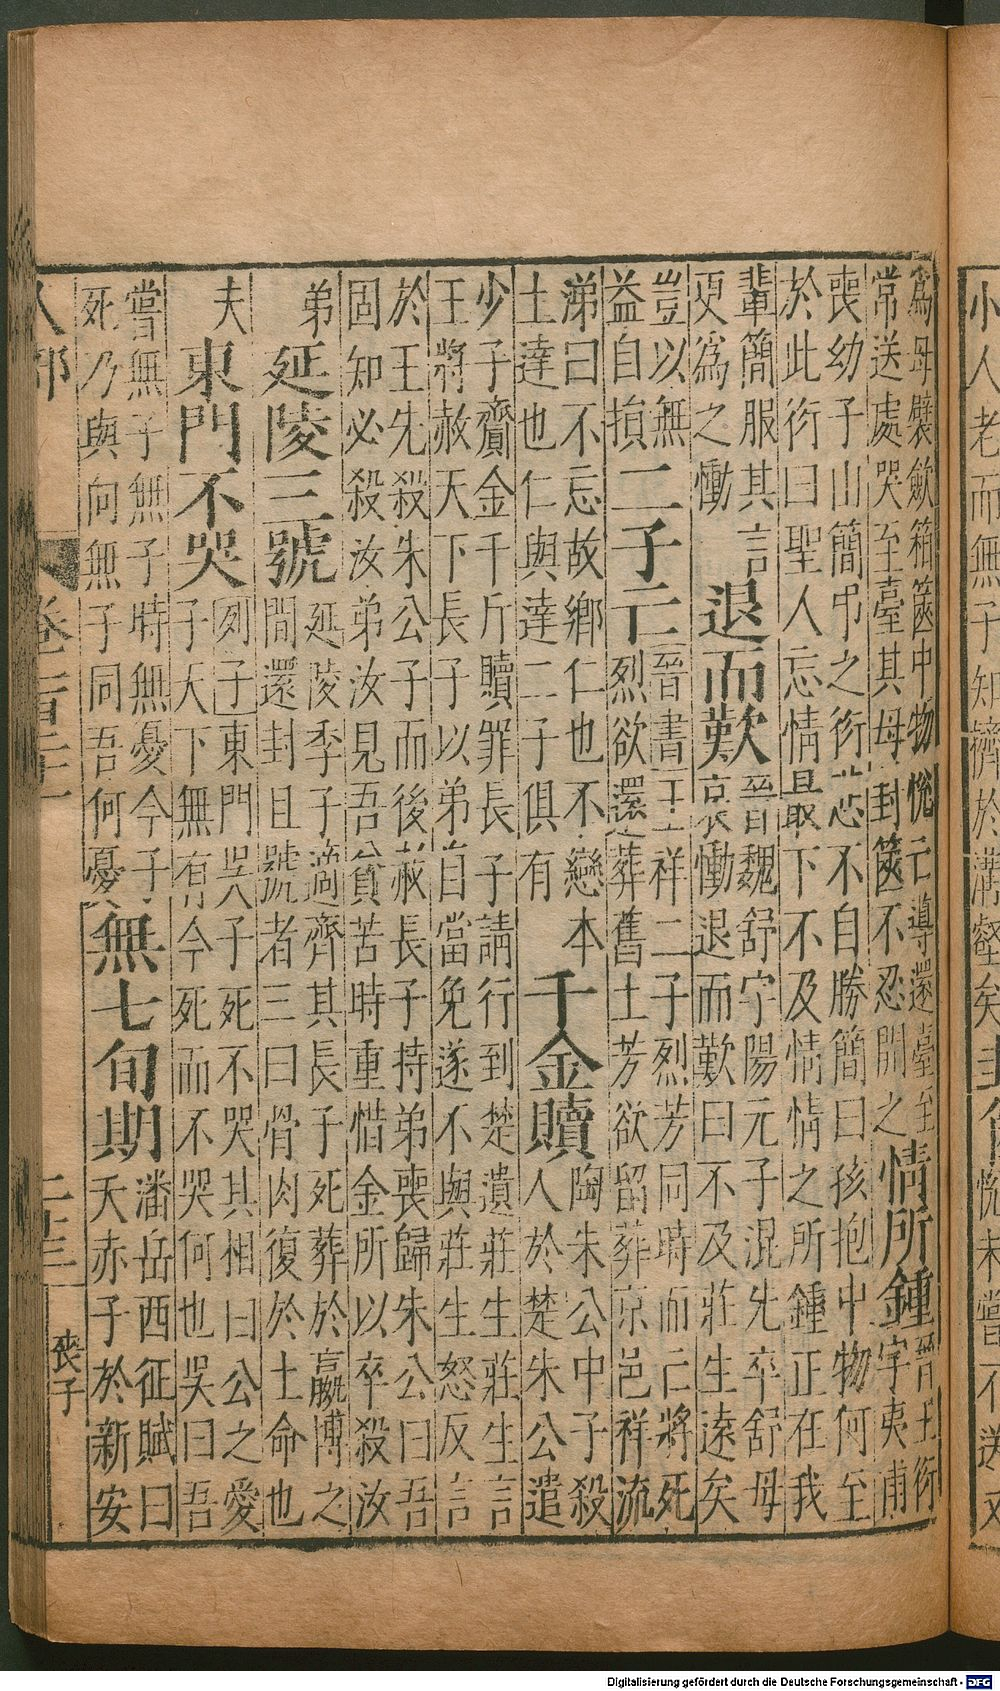 小人老而無子知擠於溝壑矣
悅未嘗不送又
爲母襞斂箱篋中物悅亡導還臺至
常送處哭至臺其母封篋不忍開之
情所鍾
晉王衍
字夷甫
喪幼子山簡弔之衍悲不自勝簡曰孩抱中物何至
於此衍曰聖人忘情最下不及情情之所鍾正在我
輩簡服其言
更爲之慟
退而歎
晉魏舒字陽元子混先卒舒母
哀慟退而歎曰不及莊生遠矣
豈以無
益自損
二子亡
晉書王祥二子烈芳同時而亡將死
烈欲還葬舊土芳欲留葬京邑祥流
涕曰不忘故鄉仁也不戀本
土達也仁與達二子俱有
千金贖
陶朱公中子殺
人於楚朱公遣
少子齎金千斤贖罪長子請行到楚遺莊生莊生言
王將赦天下長子以弟自當免遂不與莊生怒反言
於王先殺朱公子而後赦長子持弟喪歸朱公曰吾
固知必殺汝弟汝見吾貧苦時重惜金所以卒殺汝
弟
延陵三號
延陵季子適齊其長子死葬於嬴博之
間還封且號者三曰骨肉復於土命也
夫
東門不哭
列子東門吳子死不哭其相曰公之愛
子天下無有今死而不哭何也吳曰吾
嘗無子無子時無憂今子
死乃與向無子同吾何憂
無七旬期
潘岳西征賦曰
夭赤子於新安
人部
二十三
喪子
Digitalisierung gefördert durch die Deutsche Forschungsgemeinschaft - DFG